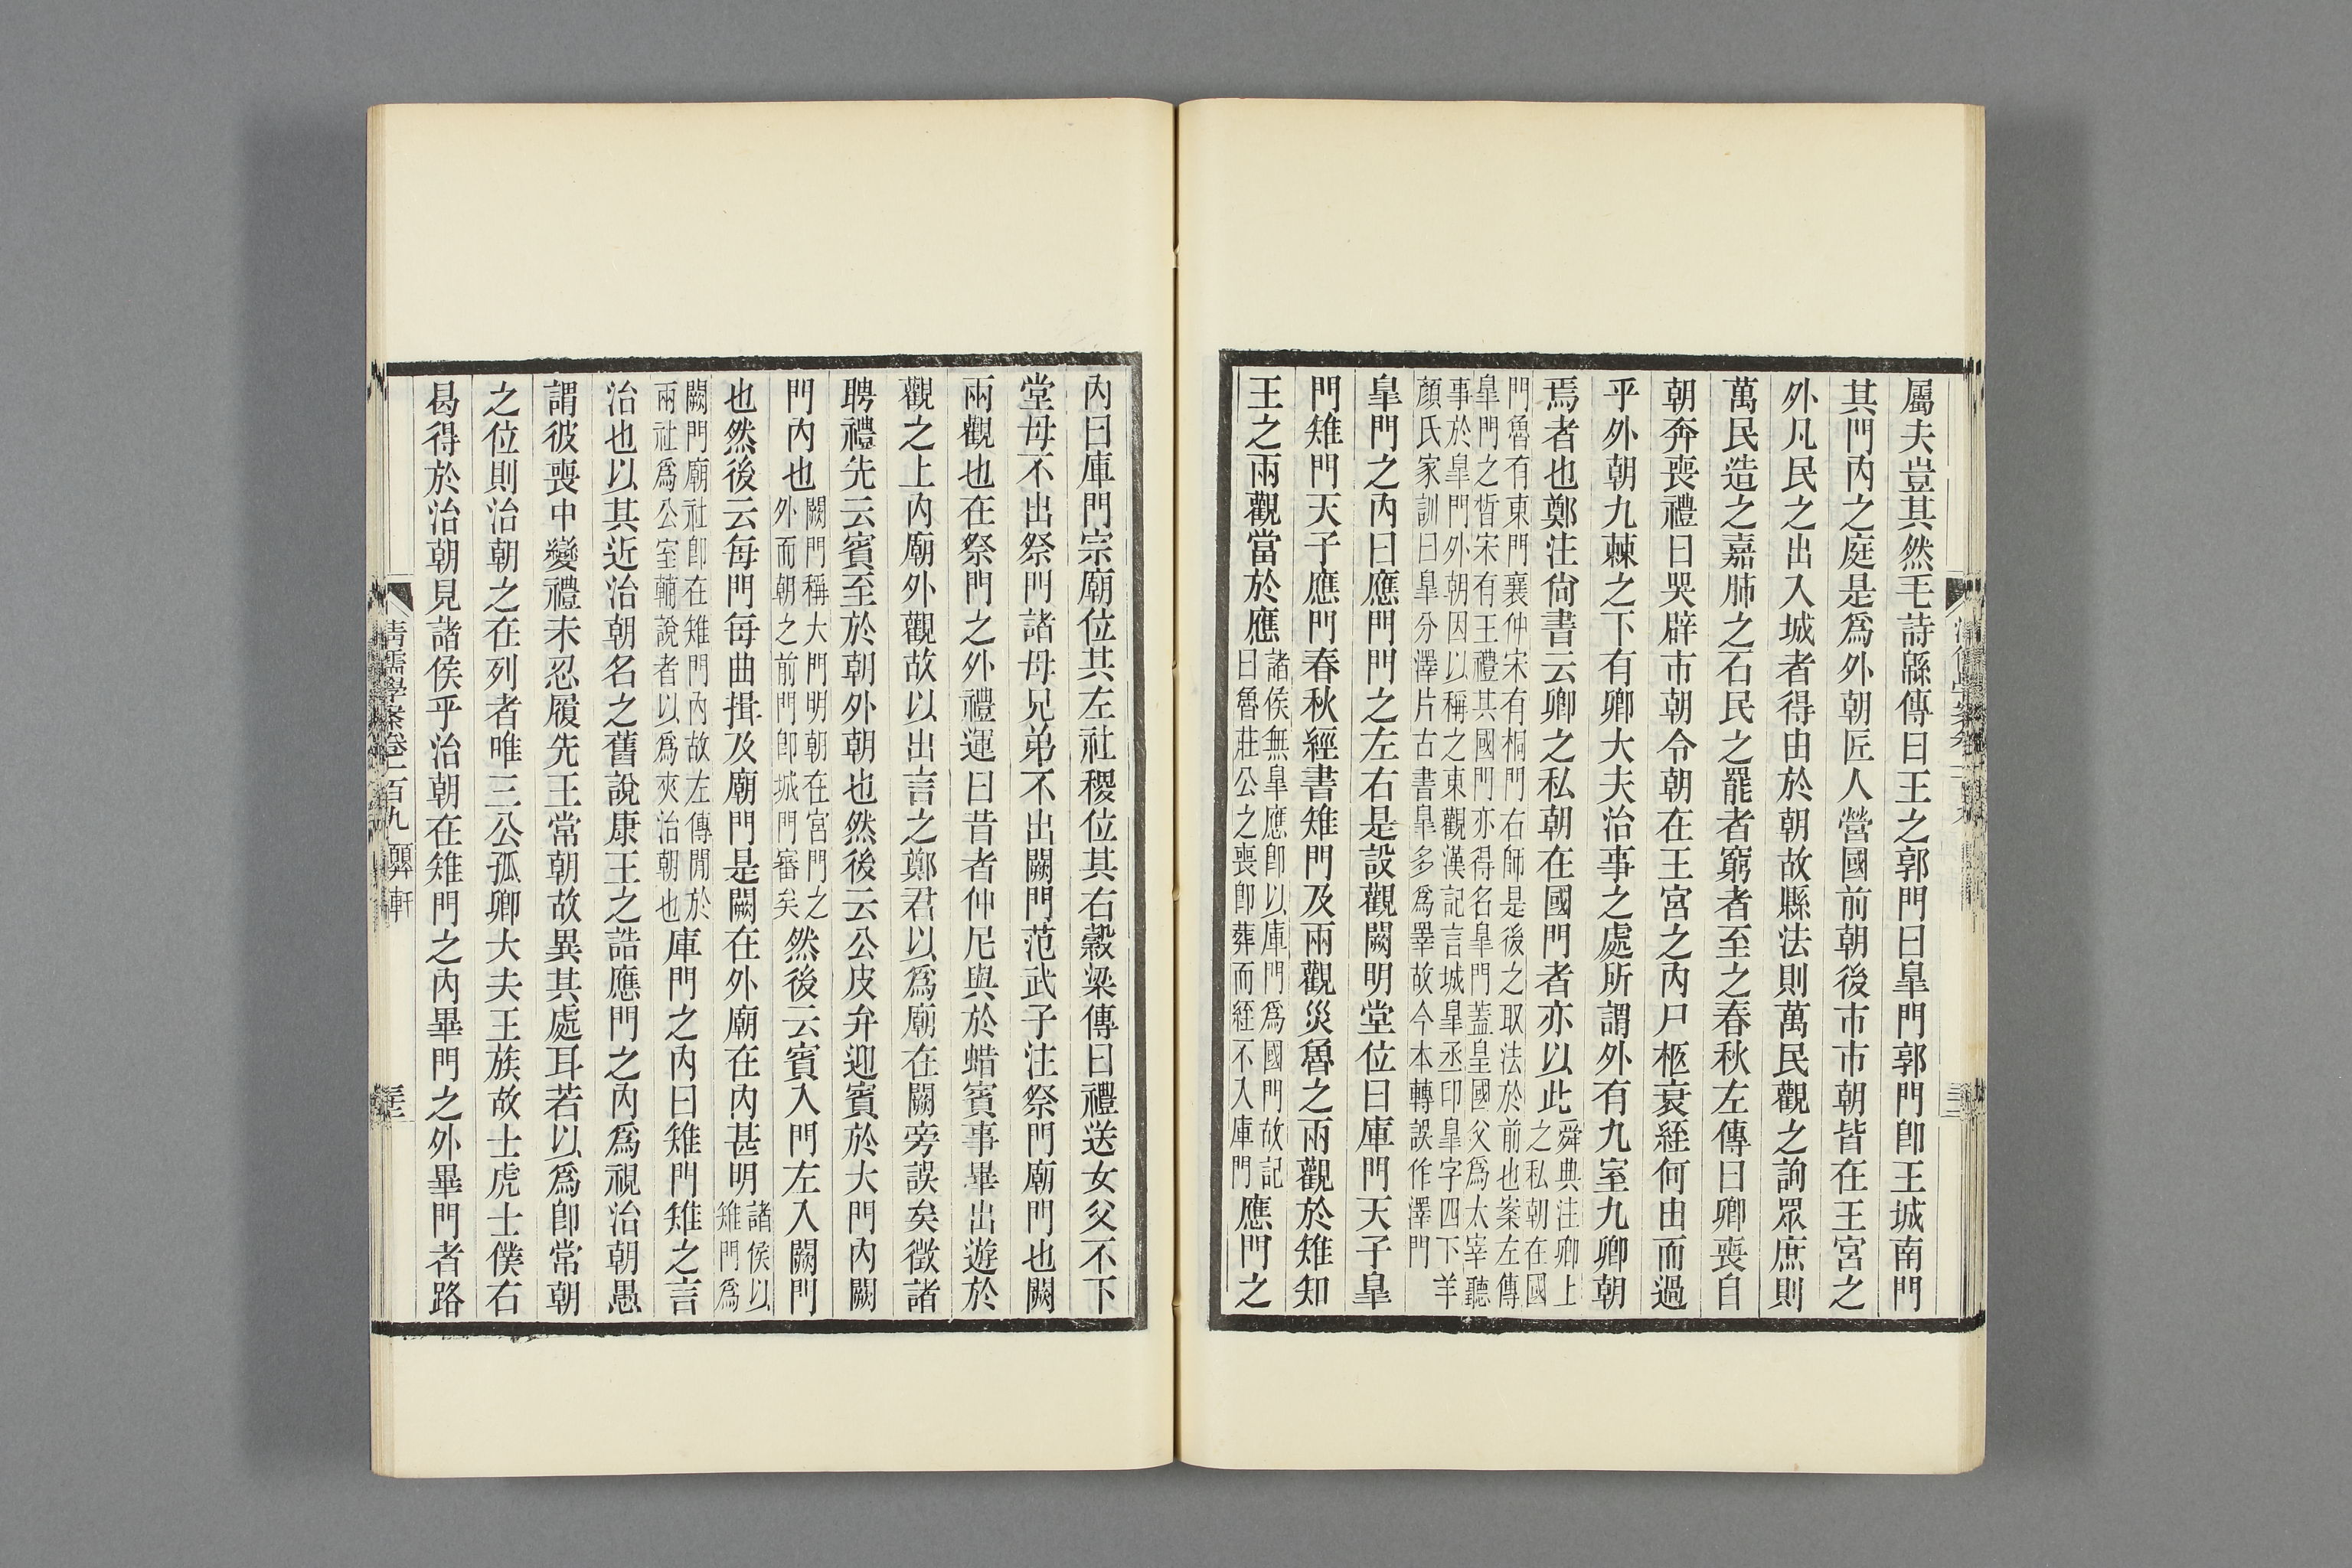 屬夫豈其然毛詩緜傳曰王之郭門曰臯門郭門卽王城南門
其門內之庭是爲外朝匠人營國前朝後市市朝皆在王宮之
外凡民之出入城者得由於朝故縣法則萬民觀之詢眾庶則
萬民造之嘉肺之石民之罷者窮者至之春秋左傳曰卿喪自
朝奔喪禮曰哭辟市朝令朝在王宮之內尸柩衰絰何由而過
乎外朝九棘之下有卿大夫治事之處所謂外有九室九卿朝
焉者也鄭注尙書云卿之私朝在國門者亦以此
舜典注卿上
之私朝在國
門魯有東門襄仲宋有桐門右師是後之取法於前也案左傳
臯門之晳宋有王禮其國門亦得名臯門蓋皇國父爲太宰聽
事於臯門外朝因以稱之東觀漢記言城臯丞印臯字四下羊
顏氏家訓曰臯分澤片古書臯多爲睪故今本轉誤作澤門
臯門之內曰應門門之左右是設觀闕明堂位曰庫門天子臯
門雉門天子應門春秋經書雉門及兩觀災魯之兩觀於雉知
王之兩觀當於應
諸侯無臯應卽以庫門爲國門故記
曰魯莊公之喪卽葬而絰不入庫門
應門之
內曰庫門宗廟位其左社稷位其右穀梁傳曰禮送女父不下
堂母不出祭門諸母兄弟不出闕門范武子注祭門廟門也闕
兩觀也在祭門之外禮運曰昔者仲尼與於蜡賓事畢出遊於
觀之上內廟外觀故以出言之鄭君以爲廟在闕旁誤矣徵諸
聘禮先云賓至於朝外朝也然後云公皮弁迎賓於大門內闕
門內也
闕門稱大門明朝在宮門之
外而朝之前門卽城門審矣
然後云賓入門左入闕門
也然後云每門每曲揖及廟門是闕在外廟在內甚明
諸侯以
雉門爲
闕門廟社卽在雉門內故左傳閒於
兩社爲公室輔說者以爲夾治朝也
庫門之內曰雉門雉之言
治也以其近治朝名之舊說康王之誥應門之內爲視治朝愚
謂彼喪中變禮未忍履先王常朝故異其處耳若以爲卽常朝
之位則治朝之在列者唯三公孤卿大夫王族故士虎士僕右
曷得於治朝見諸侯乎治朝在雉門之內畢門之外畢門者路
清儒學案卷一百九 䫖軒